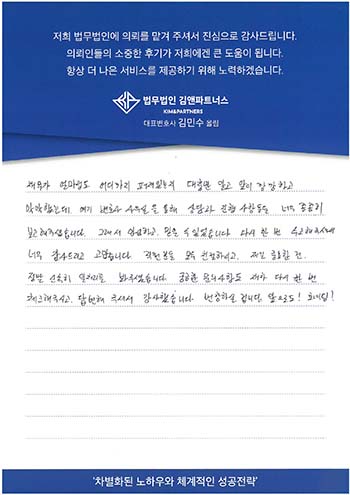 저희 법무법인에 의뢰를 맡겨 주셔서 진심으로 감사드립니다.
의뢰인들의 소중한 후기가 저희에겐 큰 도움이 됩니다.
항상 더 나은 서비스를 제공하기 위해 노력하겠습니다.
법무법인 김앤파트너스
KIM&PARTNERS
대표변호사 김민수 올림
채무가 얼마인도 어디까지 막막하고
막막했는데 여기 변호사 사무실을 통해 상담과 진행 사항들을 너무 꼼꼼히
보고해주셨습니다. 그래서 안심하고 믿을 수 있었습니다 다시 한 번 수고해주셔서
너무 감사드리고 고맙습니다. 직원분들 모두 친절하시고,
정말 신속히 일처리를 봐주셨습니다. 궁금한 문의사항도 제차 다시 한 번
체크해주시고, 답변해 주셔서 감사했습니다. 번창하실 겁니다. 앞으로도! 화이팅!
'차별화된 노하우와 체계적인 성공전략'